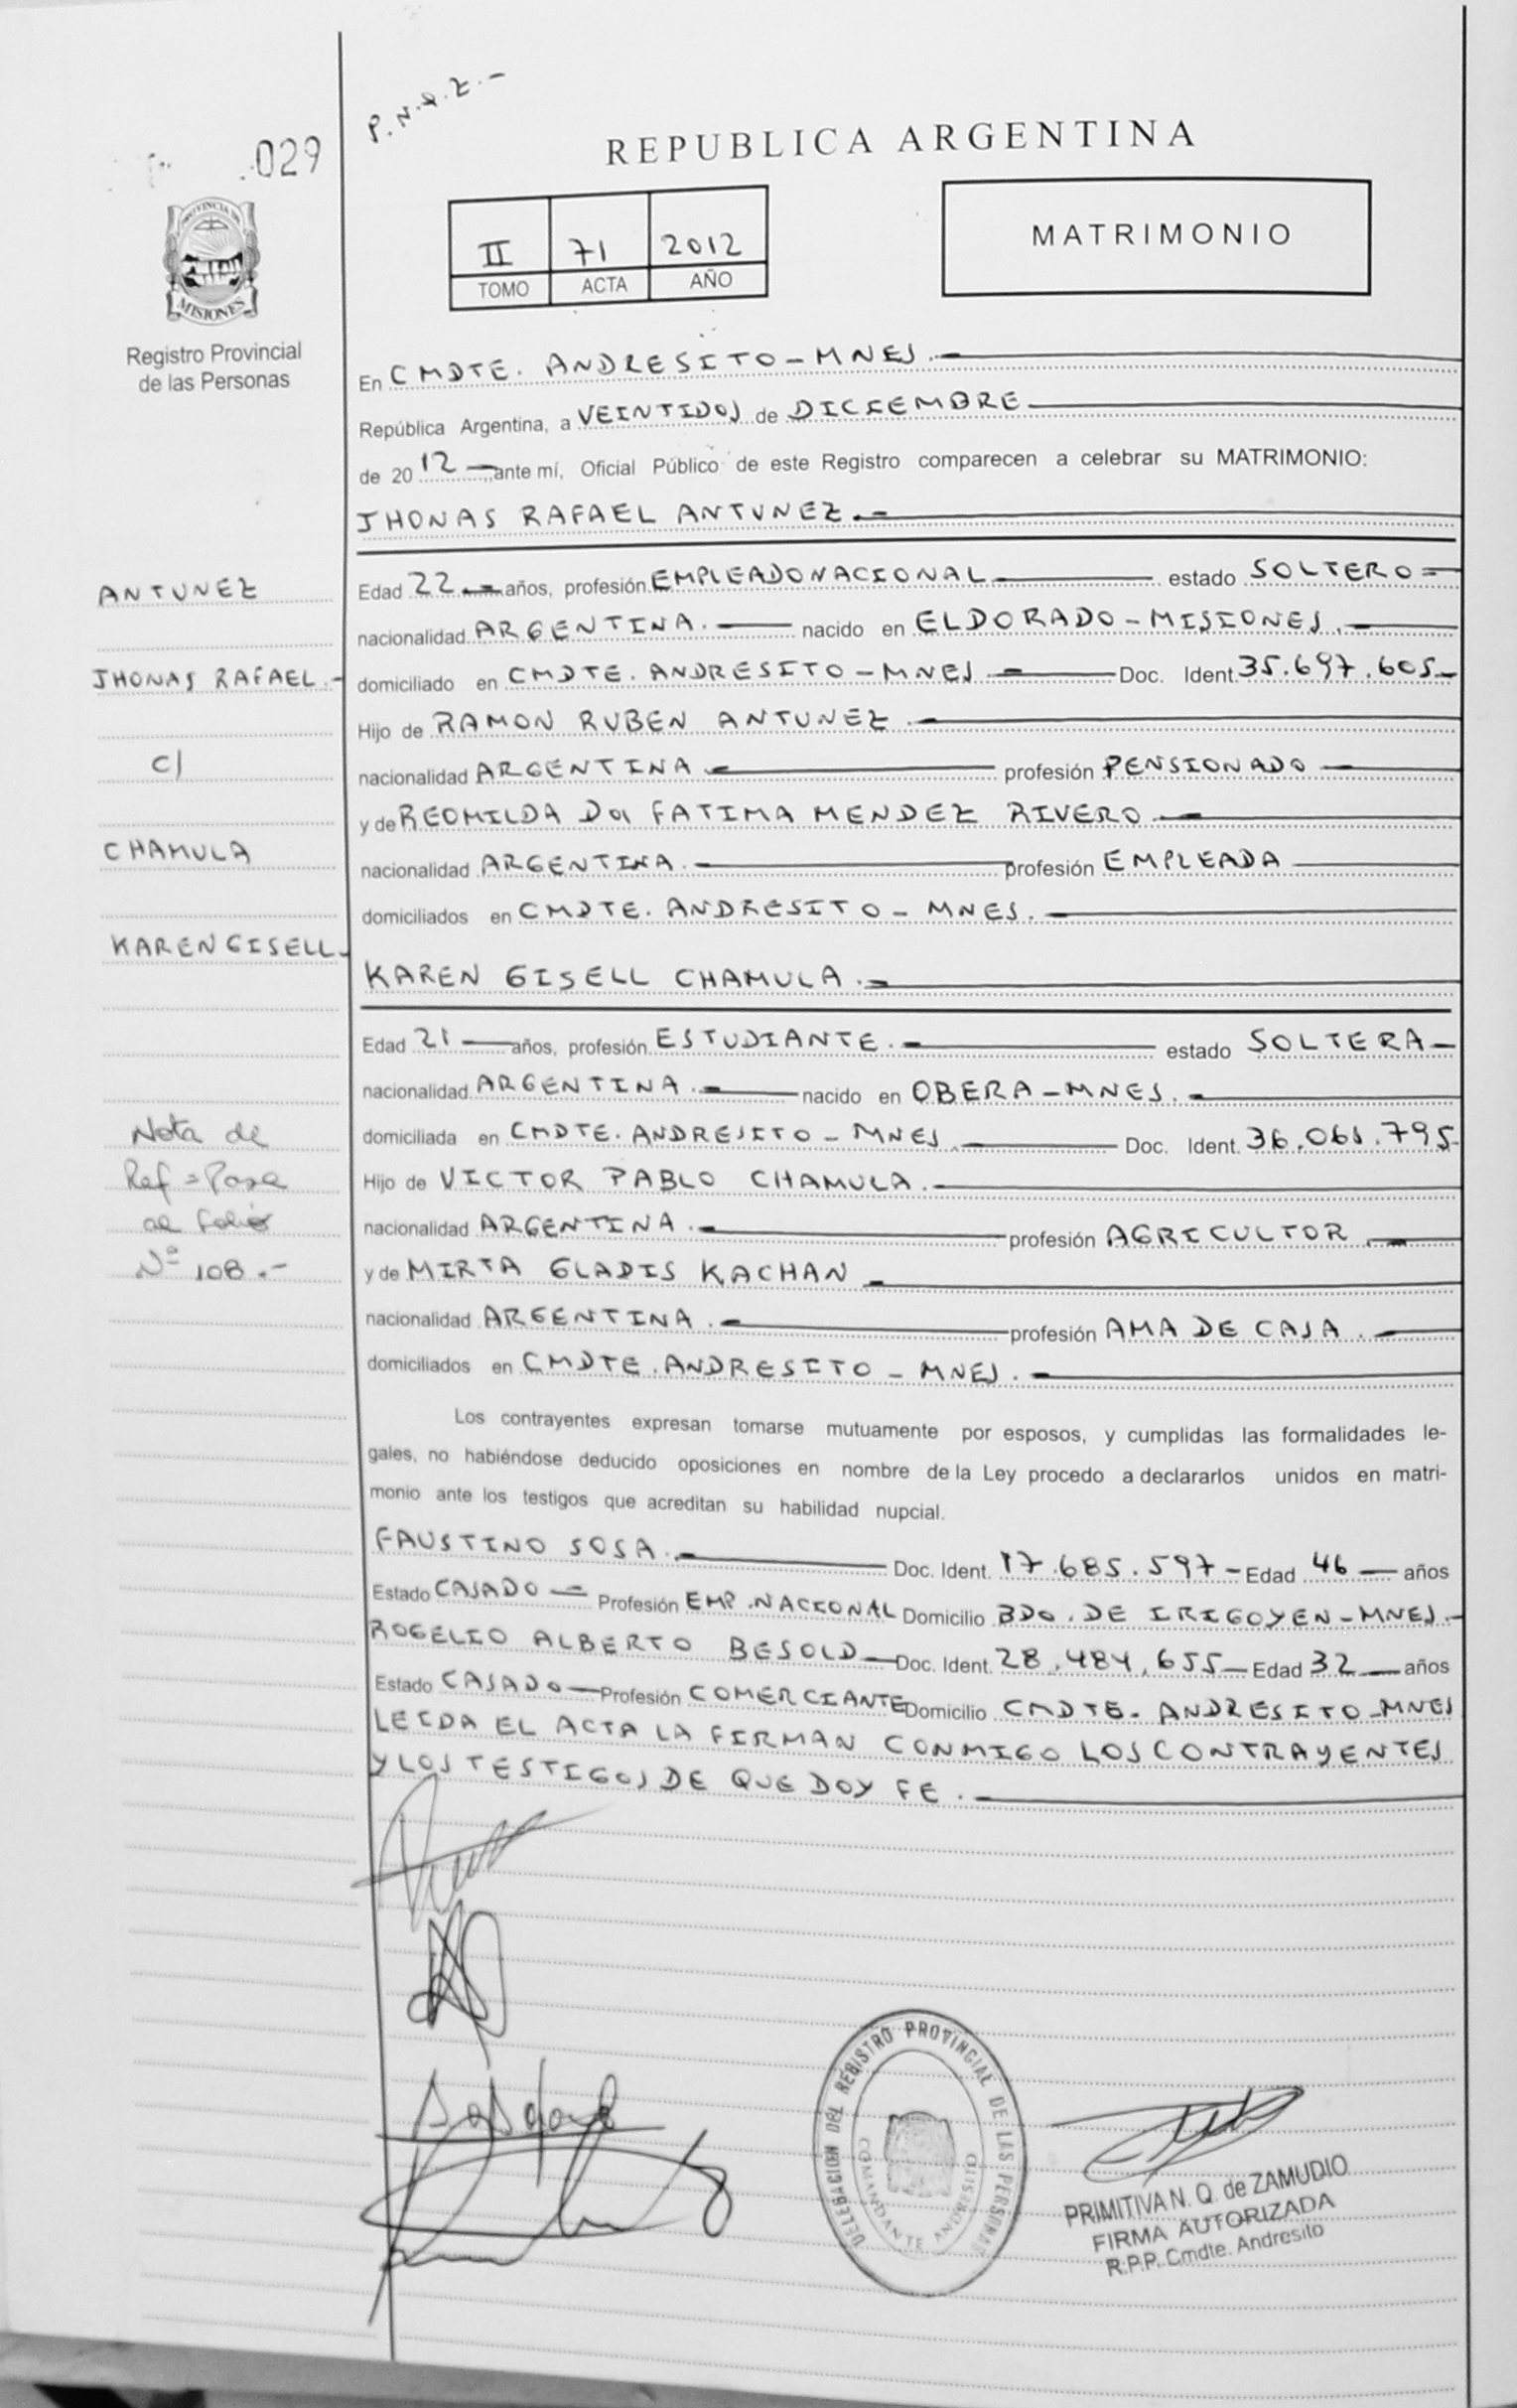 P.N.Q.Z.-
029
REPUBLICA ARGENTINA
II 71 2012
TOMO ACTA AÑO
MATRIMONIO
PROVINCIA DE
MISIONES
Registro Provincial
de las Personas
En CMDTE. ANDRESITO-MNES.-
República Argentina, a VEINTIDOS de DICIEMBRE
de 2012 - ante mí, Oficial Público de este Registro comparecen a celebrar su MATRIMONIO:
JHONAS RAFAEL ANTUNEZ.-
ANTUNEZ
JHONAS RAFAEL.-
C/
CHAMULA
KAREN GISELL.
Nota de
Ref = Pasa
al folio
Nº 108.-
Edad 22 - años, profesión EMPLEADO NACIONAL estado SOLTERO-
nacionalidad ARGENTINA.- nacido en ELDORADO-MISIONES.-
domiciliado en CMDTE. ANDRESITO-MNES - Doc. Ident. 35.697.605-
Hijo de RAMON RUBEN ANTUNEZ.-
nacionalidad ARGENTINA.- profesión PENSIONADO-
y de REOMILDA DA FATIMA MENDEZ RIVERO.-
nacionalidad ARGENTINA.- profesión EMPLEADA
domiciliados en CMDTE. ANDRESITO-MNES.-
KAREN GISELL CHAMULA.-
Edad 21 - años, profesión ESTUDIANTE.- estado SOLTERA-
nacionalidad ARGENTINA.- nacido en OBERA-MNES.-
domiciliada en CMDTE. ANDRESITO-MNES. Doc. Ident. 36.061.795-
Hijo de VICTOR PABLO CHAMULA.-
nacionalidad ARGENTINA.- profesión AGRICULTOR.-
y de MIRTA GLADIS KACHAN-
nacionalidad ARGENTINA.- profesión AMA DE CASA.-
domiciliados en CMDTE. ANDRESITO-MNES.-
Los contrayentes expresan tomarse mutuamente por esposos, y cumplidas las formalidades le-
gales, no habiéndose deducido oposiciones en nombre de la Ley procedo a declararlos unidos en matri-
monio ante los testigos que acreditan su habilidad nupcial.
FAUSTINO SOSA.- Doc. Ident. 17.685.597- Edad 46 - años
Estado CASADO - Profesión EMP. NACIONAL Domicilio BDO. DE IRIGOYEN-MNES.-
ROGELIO ALBERTO BESOLD - Doc. Ident. 28.484.655 - Edad 32 - años
Estado CASADO - Profesión COMERCIANTE Domicilio CMDTE. ANDRESITO-MNES
LEIDA EL ACTA LA FIRMAN CONMIGO LOS CONTRAYENTES
Y LOS TESTIGOS DE QUE DOY FE.-
DELEGACION DEL REGISTRO PROVINCIAL DE LAS PERSONAS
COMANDANTE ANDRESITO
PRIMITIVA N. Q. de ZAMUDIO
FIRMA AUTORIZADA
R.P.P. Cmdte. Andresito